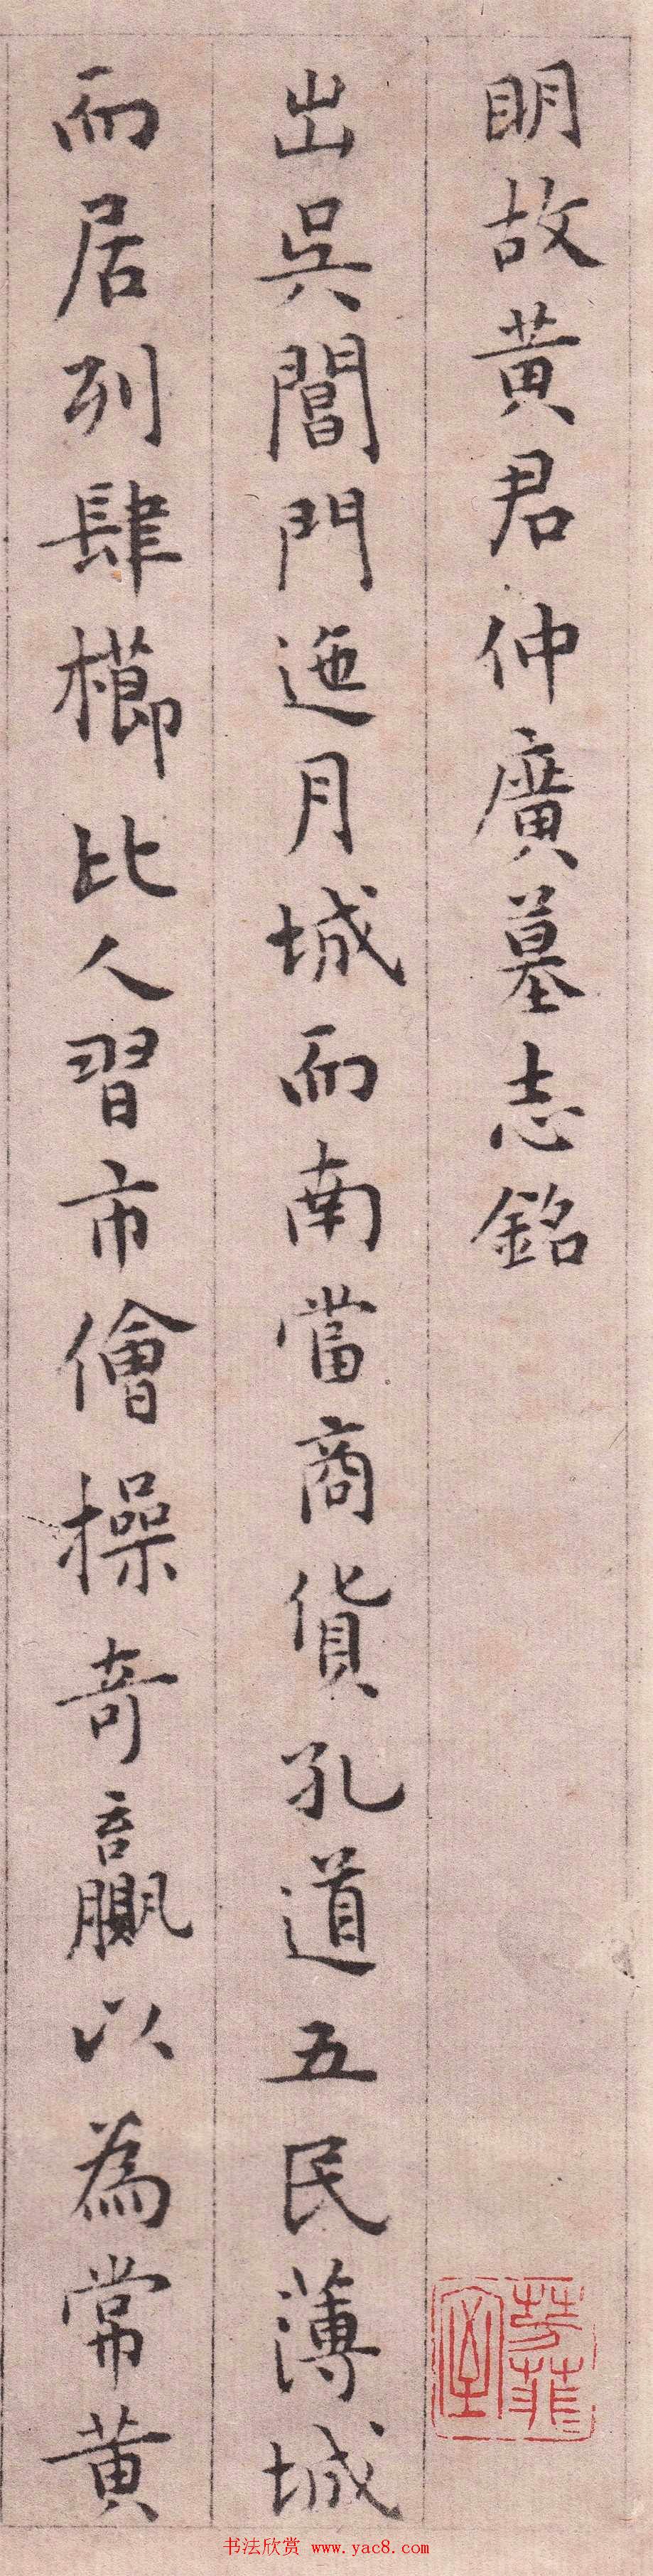 明故黃君仲廣墓志銘
出吳閶門迤月城而南當商貨孔道五民薄城
而居列肆櫛比人習市儈操奇贏以為常黃
芳菲
室
书法欣赏 www.yac8.com